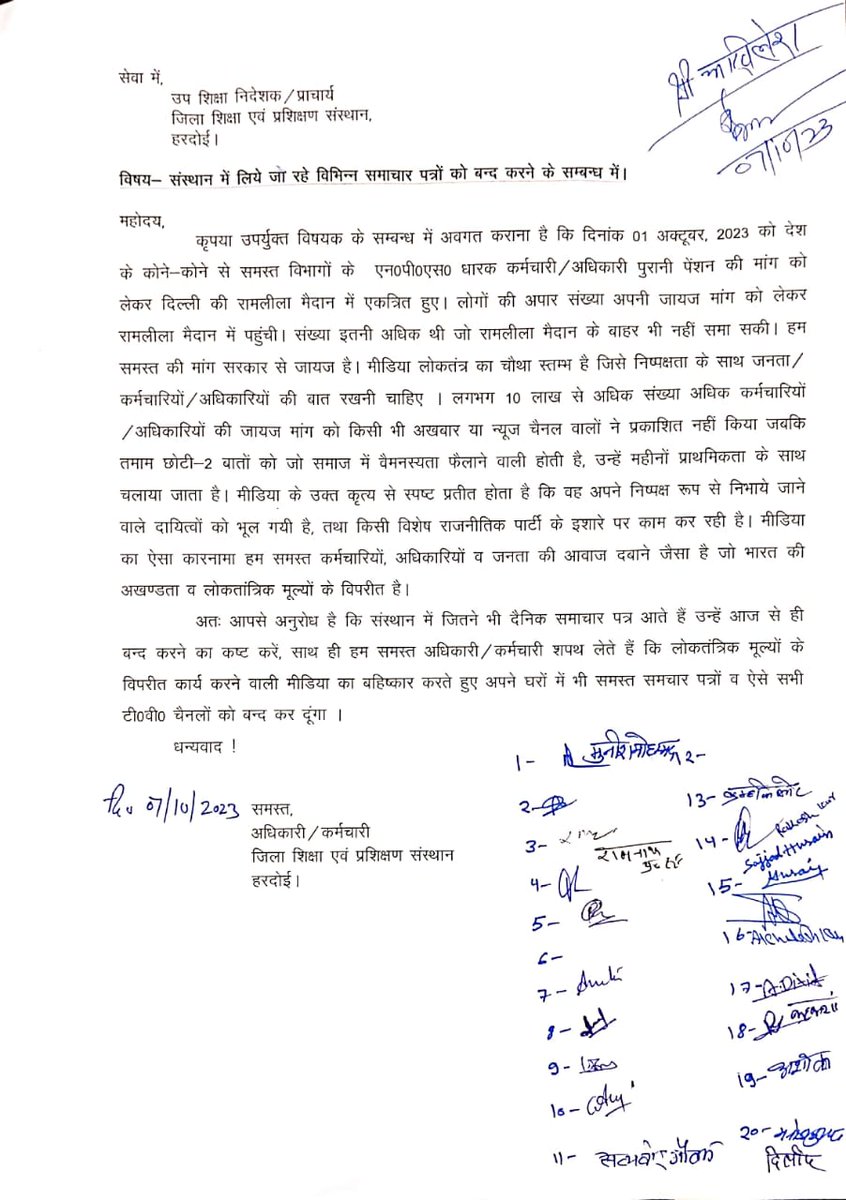 श्री अखिलेश
07/10/23
सेवा में,
उप शिक्षा निदेशक/प्राचार्य
जिला शिक्षा एवं प्रशिक्षण संस्थान,
हरदोई।
विषय– संस्थान में लिये जा रहे विभिन्न समाचार पत्रों को बन्द करने के सम्बन्ध में।
महोदय,
कृपया उपर्युक्त विषयक के सम्बन्ध में अवगत कराना है कि दिनांक 01 अक्टूबर, 2023 को देश
के कोने–कोने से समस्त विभागों के एन0पी0एस0 धारक कर्मचारी/अधिकारी पुरानी पेंशन की मांग को
लेकर दिल्ली की रामलीला मैदान में एकत्रित हुए। लोगों की अपार संख्या अपनी जायज मांग को लेकर
रामलीला मैदान में पहुंची। संख्या इतनी अधिक थी जो रामलीला मैदान के बाहर भी नहीं समा सकी। हम
समस्त की मांग सरकार से जायज है। मीडिया लोकतंत्र का चौथा स्तम्भ है जिसे निष्पक्षता के साथ जनता/
कर्मचारियों/अधिकारियों की बात रखनी चाहिए । लगभग 10 लाख से अधिक संख्या अधिक कर्मचारियों
/अधिकारियों की जायज मांग को किसी भी अखबार या न्यूज चैनल वालों ने प्रकाशित नहीं किया जबकि
तमाम छोटी–2 बातों को जो समाज में वैमनस्यता फैलाने वाली होती है, उन्हें महीनों प्राथमिकता के साथ
चलाया जाता है। मीडिया के उक्त कृत्य से स्पष्ट प्रतीत होता है कि वह अपने निष्पक्ष रूप से निभाये जाने
वाले दायित्वों को भूल गयी है, तथा किसी विशेष राजनीतिक पार्टी के इशारे पर काम कर रही है। मीडिया
का ऐसा कारनामा हम समस्त कर्मचारियों, अधिकारियों व जनता की आवाज दबाने जैसा है जो भारत की
अखण्डता व लोकतांत्रिक मूल्यों के विपरीत है।
अतः आपसे अनुरोध है कि संस्थान में जितने भी दैनिक समाचार पत्र आते हैं उन्हें आज से ही
बन्द करने का कष्ट करें, साथ ही हम समस्त अधिकारी/कर्मचारी शपथ लेते हैं कि लोकतंत्रिक मूल्यों के
विपरीत कार्य करने वाली मीडिया का बहिष्कार करते हुए अपने घरों में भी समस्त समचार पत्रों व ऐसे सभी
टी0वी0 चैनलों को बन्द कर दूंगा ।
धन्यवाद !
दि0 07/10/2023 समस्त,
अधिकारी/कर्मचारी
जिला शिक्षा एवं प्रशिक्षण संस्थान
हरदोई।
1-
12-
2-
13-
3-
रामनाथ
14-
4-
Sajjad Husain
15-
5-
16-
6-
7-
17- A.Dixit
8-
18-
9-
19- अशोक
10-
20-
11-
दिलीप